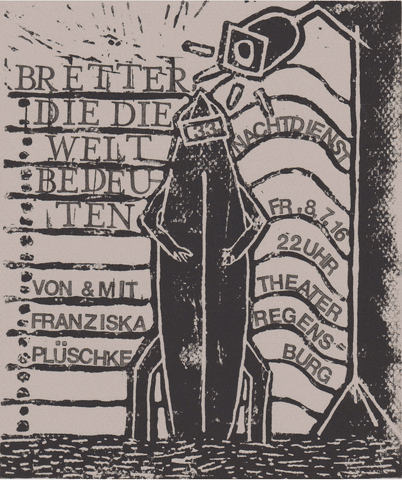 BRETTER
DIE DIE
WELT
BEDEU
TEN
VON & MIT
FRANZISKA
PLÜSCHKE
NACHTDIENST
FR. 8.7.16
22 UHR
THEATER
REGENS-
BURG